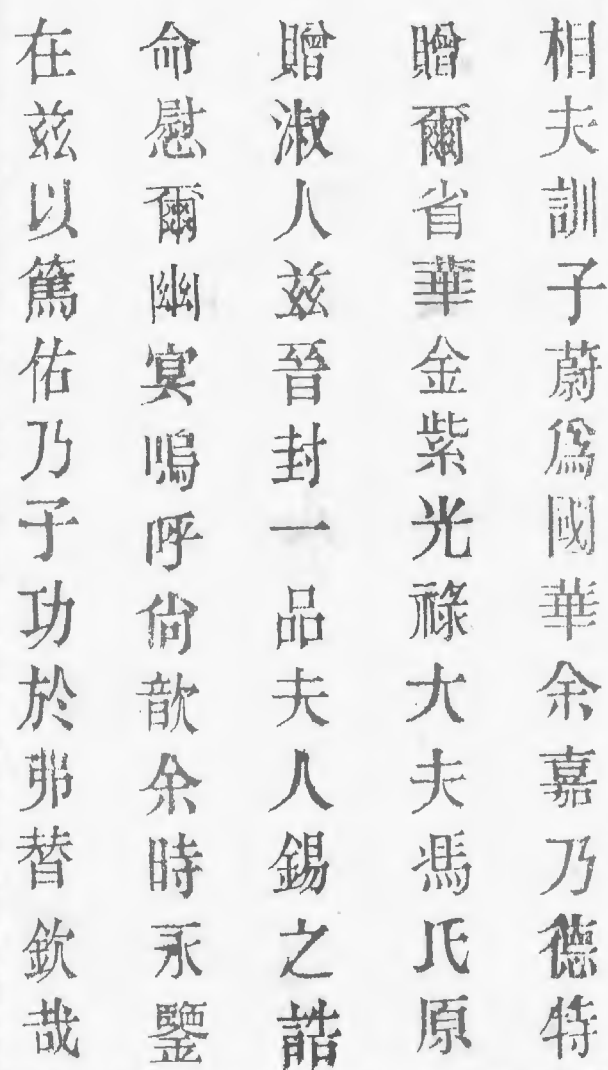 相夫訓子蔚爲國華余嘉乃德特
贈爾省華金紫光祿大夫馮氏原
贈淑人兹晉封一品夫人錫之誥
命慰爾幽冥嗚呼尙歆余時永鑒
在兹以篤佑乃子功於弗替欽哉